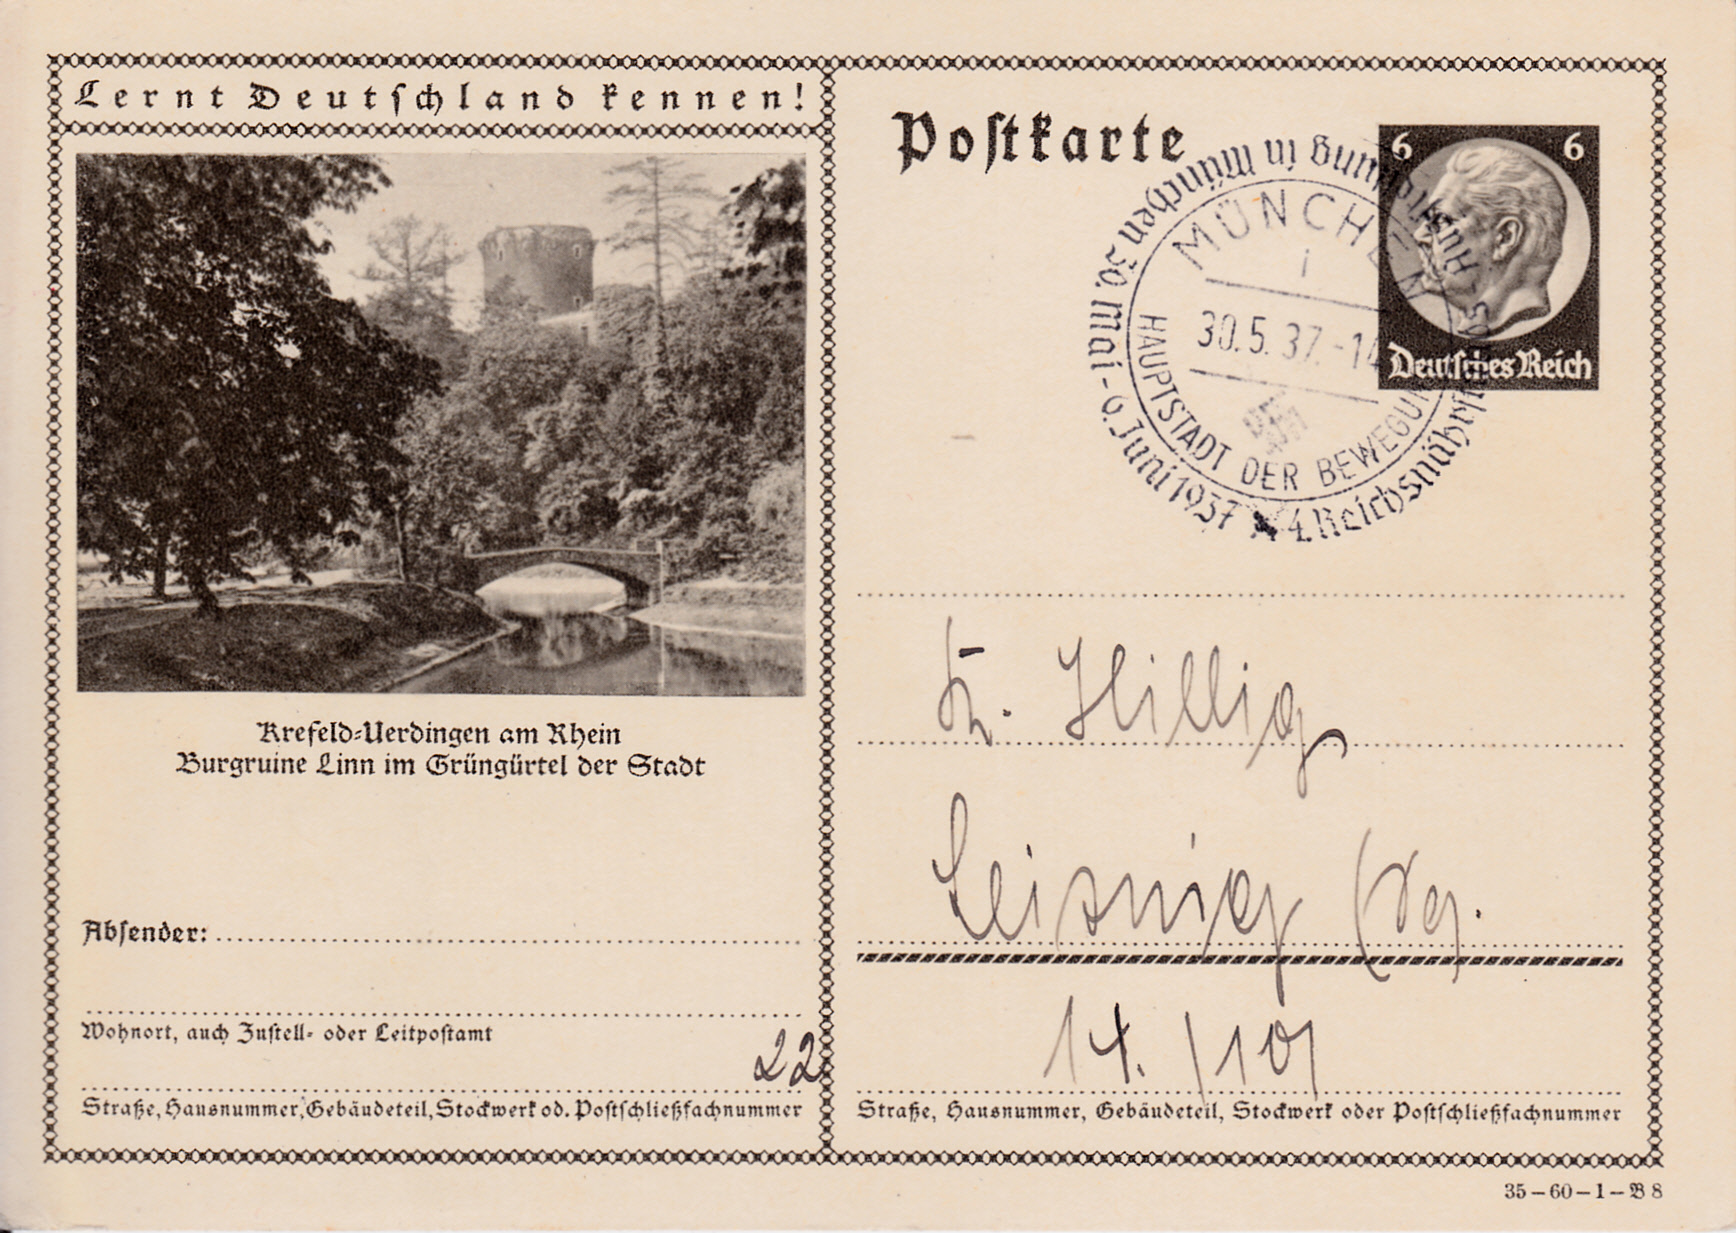 Lernt Deutschland kennen!
Postkarte
6 6
Deutsches Reich
MÜNCHEN
i
30.5.37.-14
HAUPTSTADT DER BEWEGUNG
4. Reichsnährstands-Ausstellung in München 30. Mai - 6. Juni 1937
Krefeld-Uerdingen am Rhein
Burgruine Linn im Grüngürtel der Stadt
Hillig
Leisnig
Absender:
Wohnort, auch Zustell- oder Leitpostamt
22
Straße, Hausnummer, Gebäudeteil, Stockwerk od. Postschließfachnummer
Straße, Hausnummer, Gebäudeteil, Stockwerk oder Postschließfachnummer
35-60-1-B 8